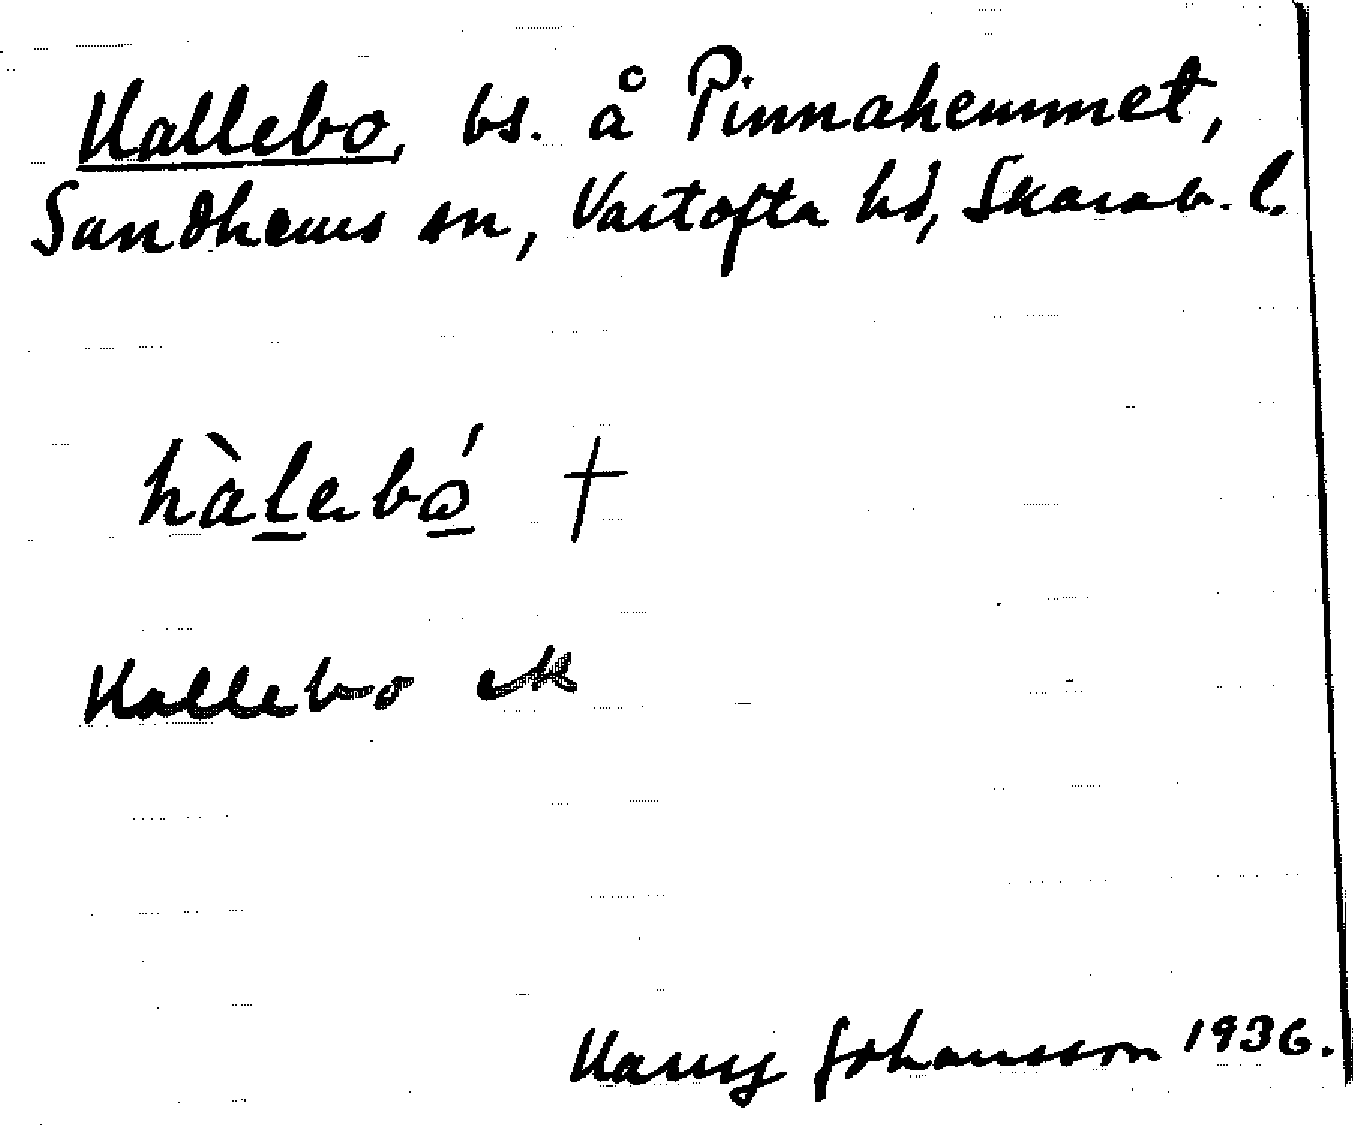 Hallebo, bs. å Pinnahemmet,
Sandhems sn, Vartofta hd, Skarab. l.
hàlebó †
Hallebo
Harry Johansson 1936.